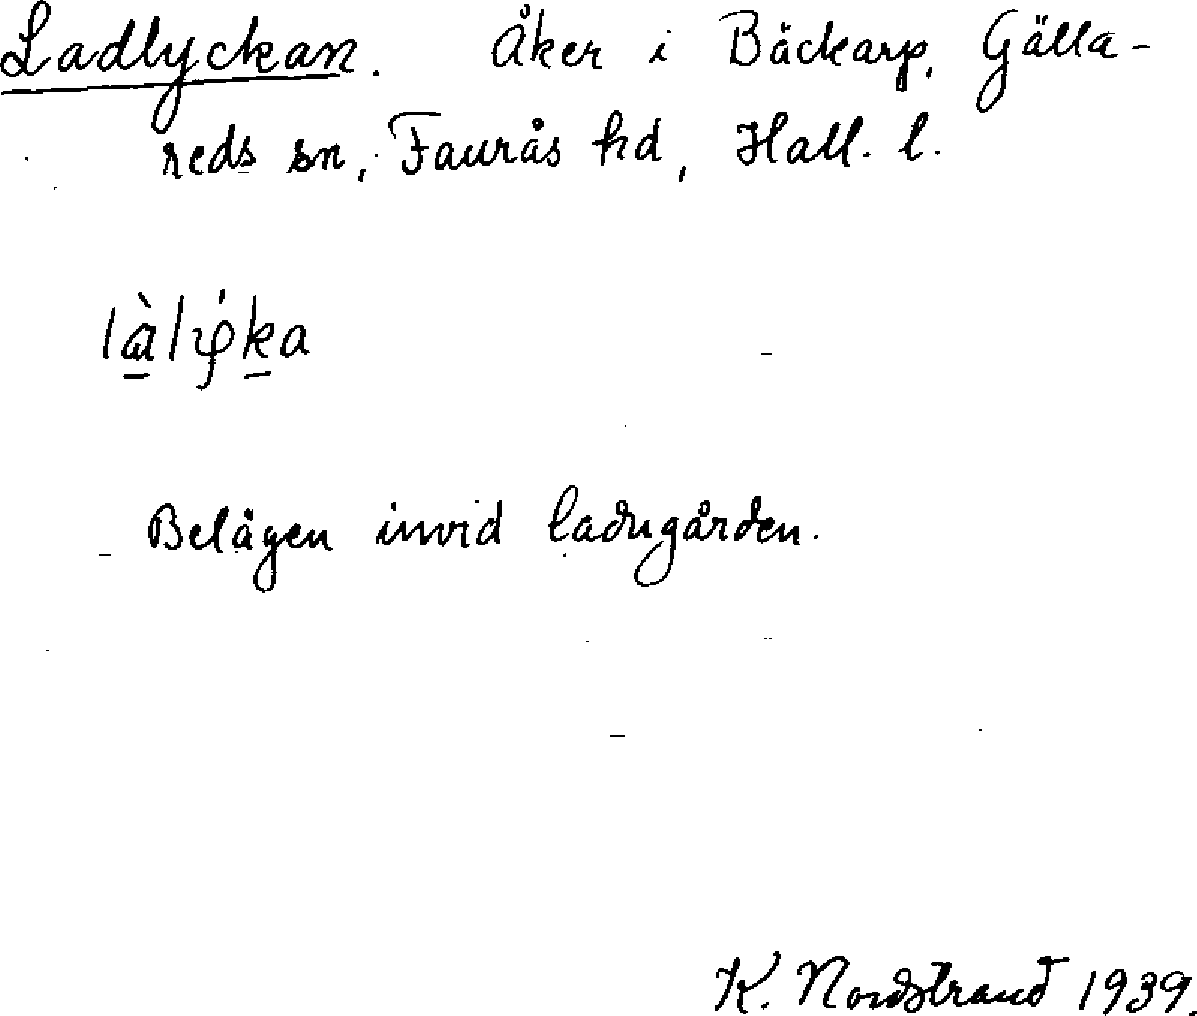 Ladlyckan. Åker i Bäckarp, Gälla-
reds sn, Faurås hd, Hall. l.
Belägen invid ladugården.
K. Nordstrand 1939.